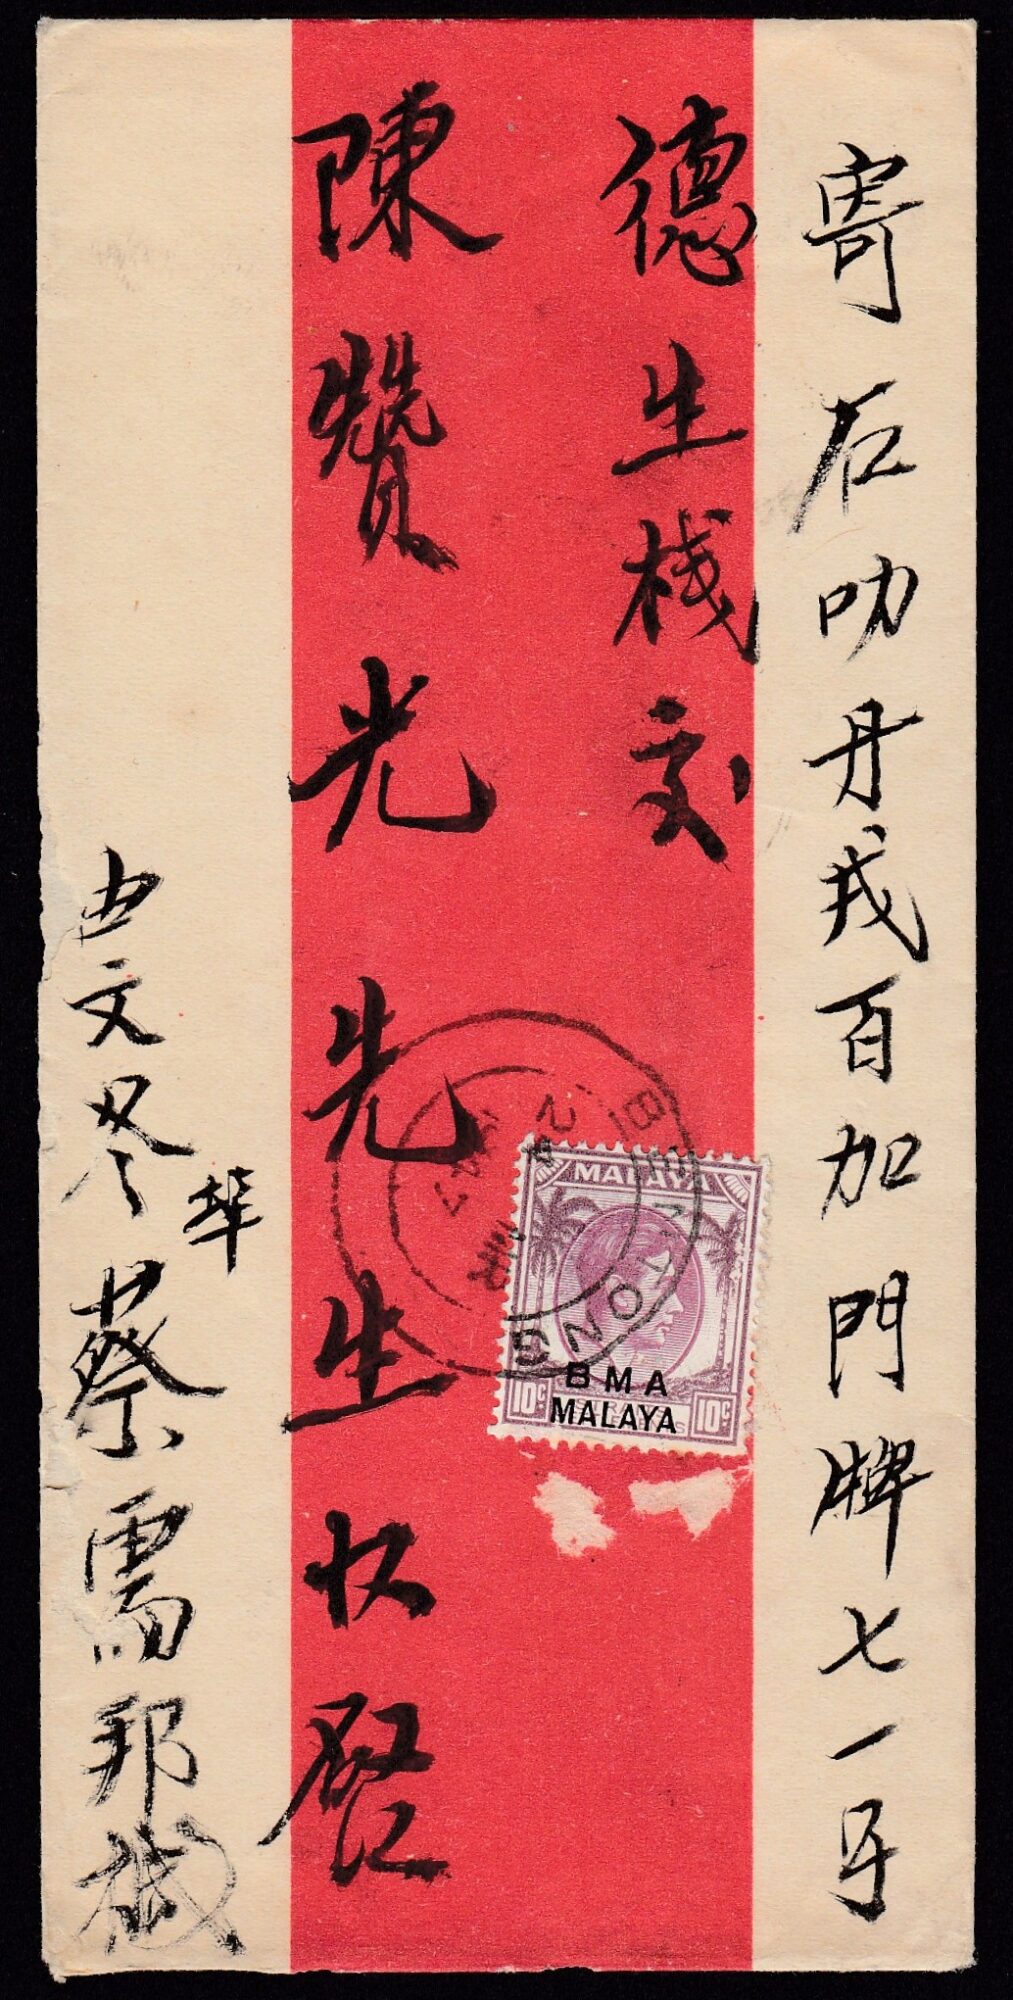 寄石叻丹戎百加門牌七一号
德生栈交
陳贊光先生收啓
由文冬
蔡 邦緘
MALAYA
BMA
MALAYA
10c 10c
BENTONG
2 MR 47